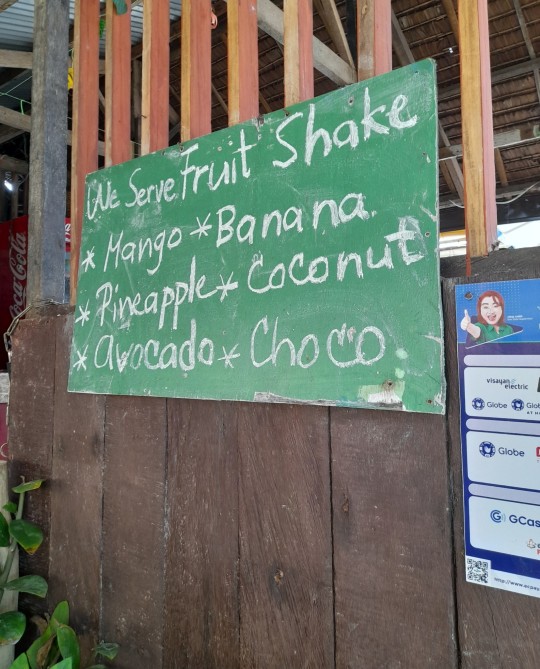 We Serve Fruit Shake
* Mango * Banana
* Pineapple * Coconut
* Avocado * Choco
Coca-Cola
visayan electric
Globe
Globe
Globe
GCas